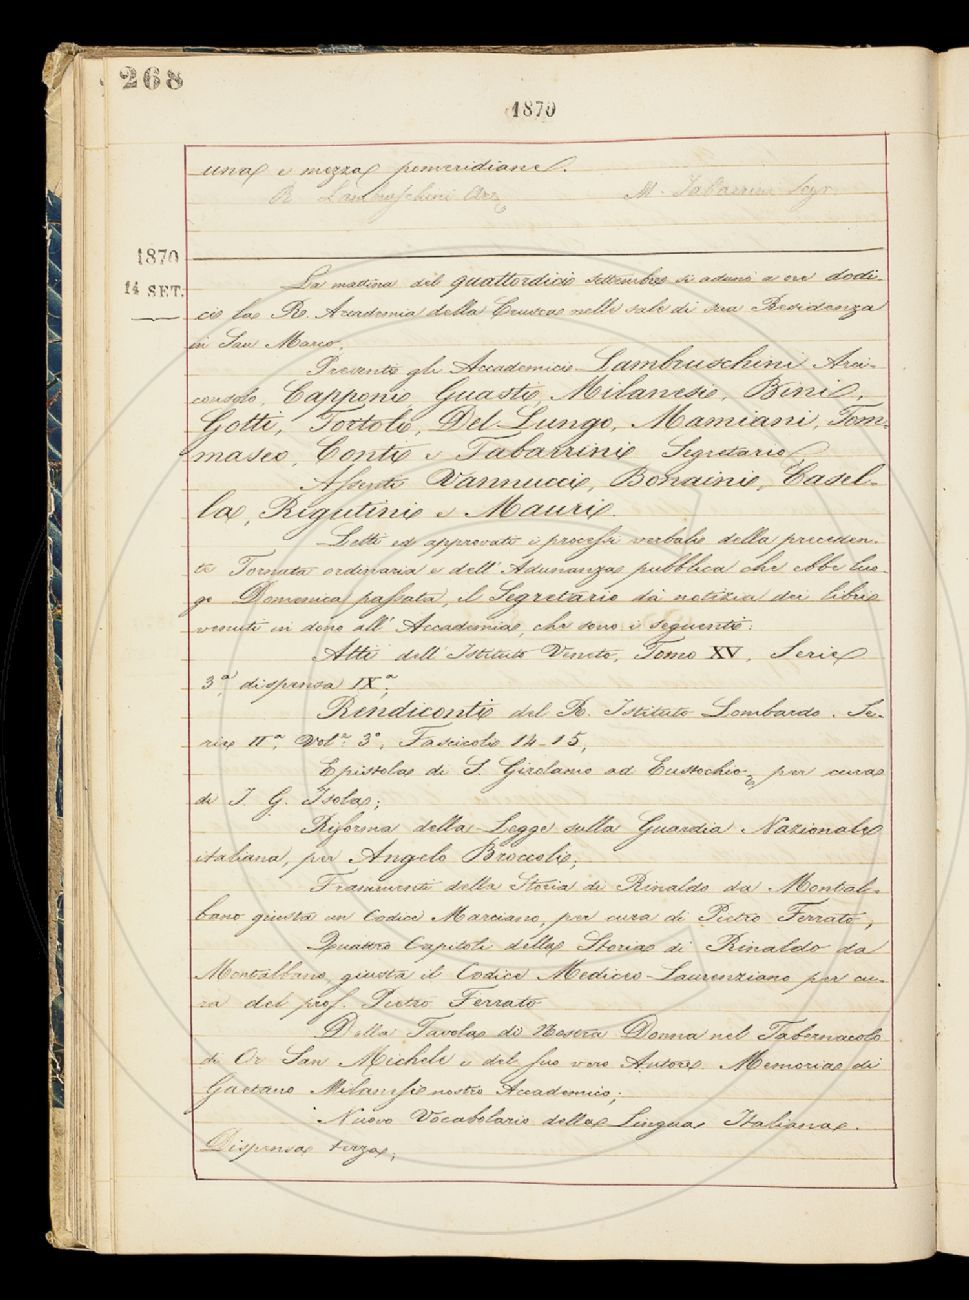 268
1870
una e mezza pomeridiane.
R. Lambruschini Arc. M. Tabarrini Segr.
1870
14 SET.
La mattina del quattordici settembre si adunò a ore dodi-
ci la R. Accademia della Crusca nelle sale di sua Residenza
in San Marco.
Presenti gli Accademici Lambruschini Arci-
consolo, Capponi Guasti, Milanesi, Bini,
Gotti, Tortoli, Del-Lungo, Mamiani, Tom-
maseo, Conti e Tabarrini Segretario.
Assenti Vannucci, Bonaini, Casel-
la, Rigutini e Mauri.
Letti ed approvati i processi verbali della preceden-
te Tornata ordinaria e dell'Adunanza pubblica che ebbe luo-
go Domenica passata, il Segretario dà notizia dei libri
venuti in dono all'Accademia, che sono i seguenti:
Atti dell'Istituto Veneto, Tomo XV. Serie
3ª, dispensa IXª;
Rendiconti del R. Istituto Lombardo. Se-
rie IIª, Volᵉ 3°, Fascicoli 14-15,
Epistola di S. Girolamo ad Eustochio, per cura
di I. G. Isola;
Riforma della Legge sulla Guardia Nazionale
italiana, per Angelo Broccoli;
Frammenti della Storia di Rinaldo da Montal-
bano giusta un Codice Marciano, per cura di Pietro Ferrato,
Quattro Capitoli della Storia di Rinaldo da
Montalbano, giusta il Codice Mediceo-Laurenziano per cu-
ra del prof. Pietro Ferrato
Della Tavola di Nostra Donna nel Tabernacolo
di Or San Michele e del suo vero Autore. Memoria di
Gaetano Milanesi nostro Accademico;
Nuovo Vocabolario della Lingua Italiana.
Dispensa terza;